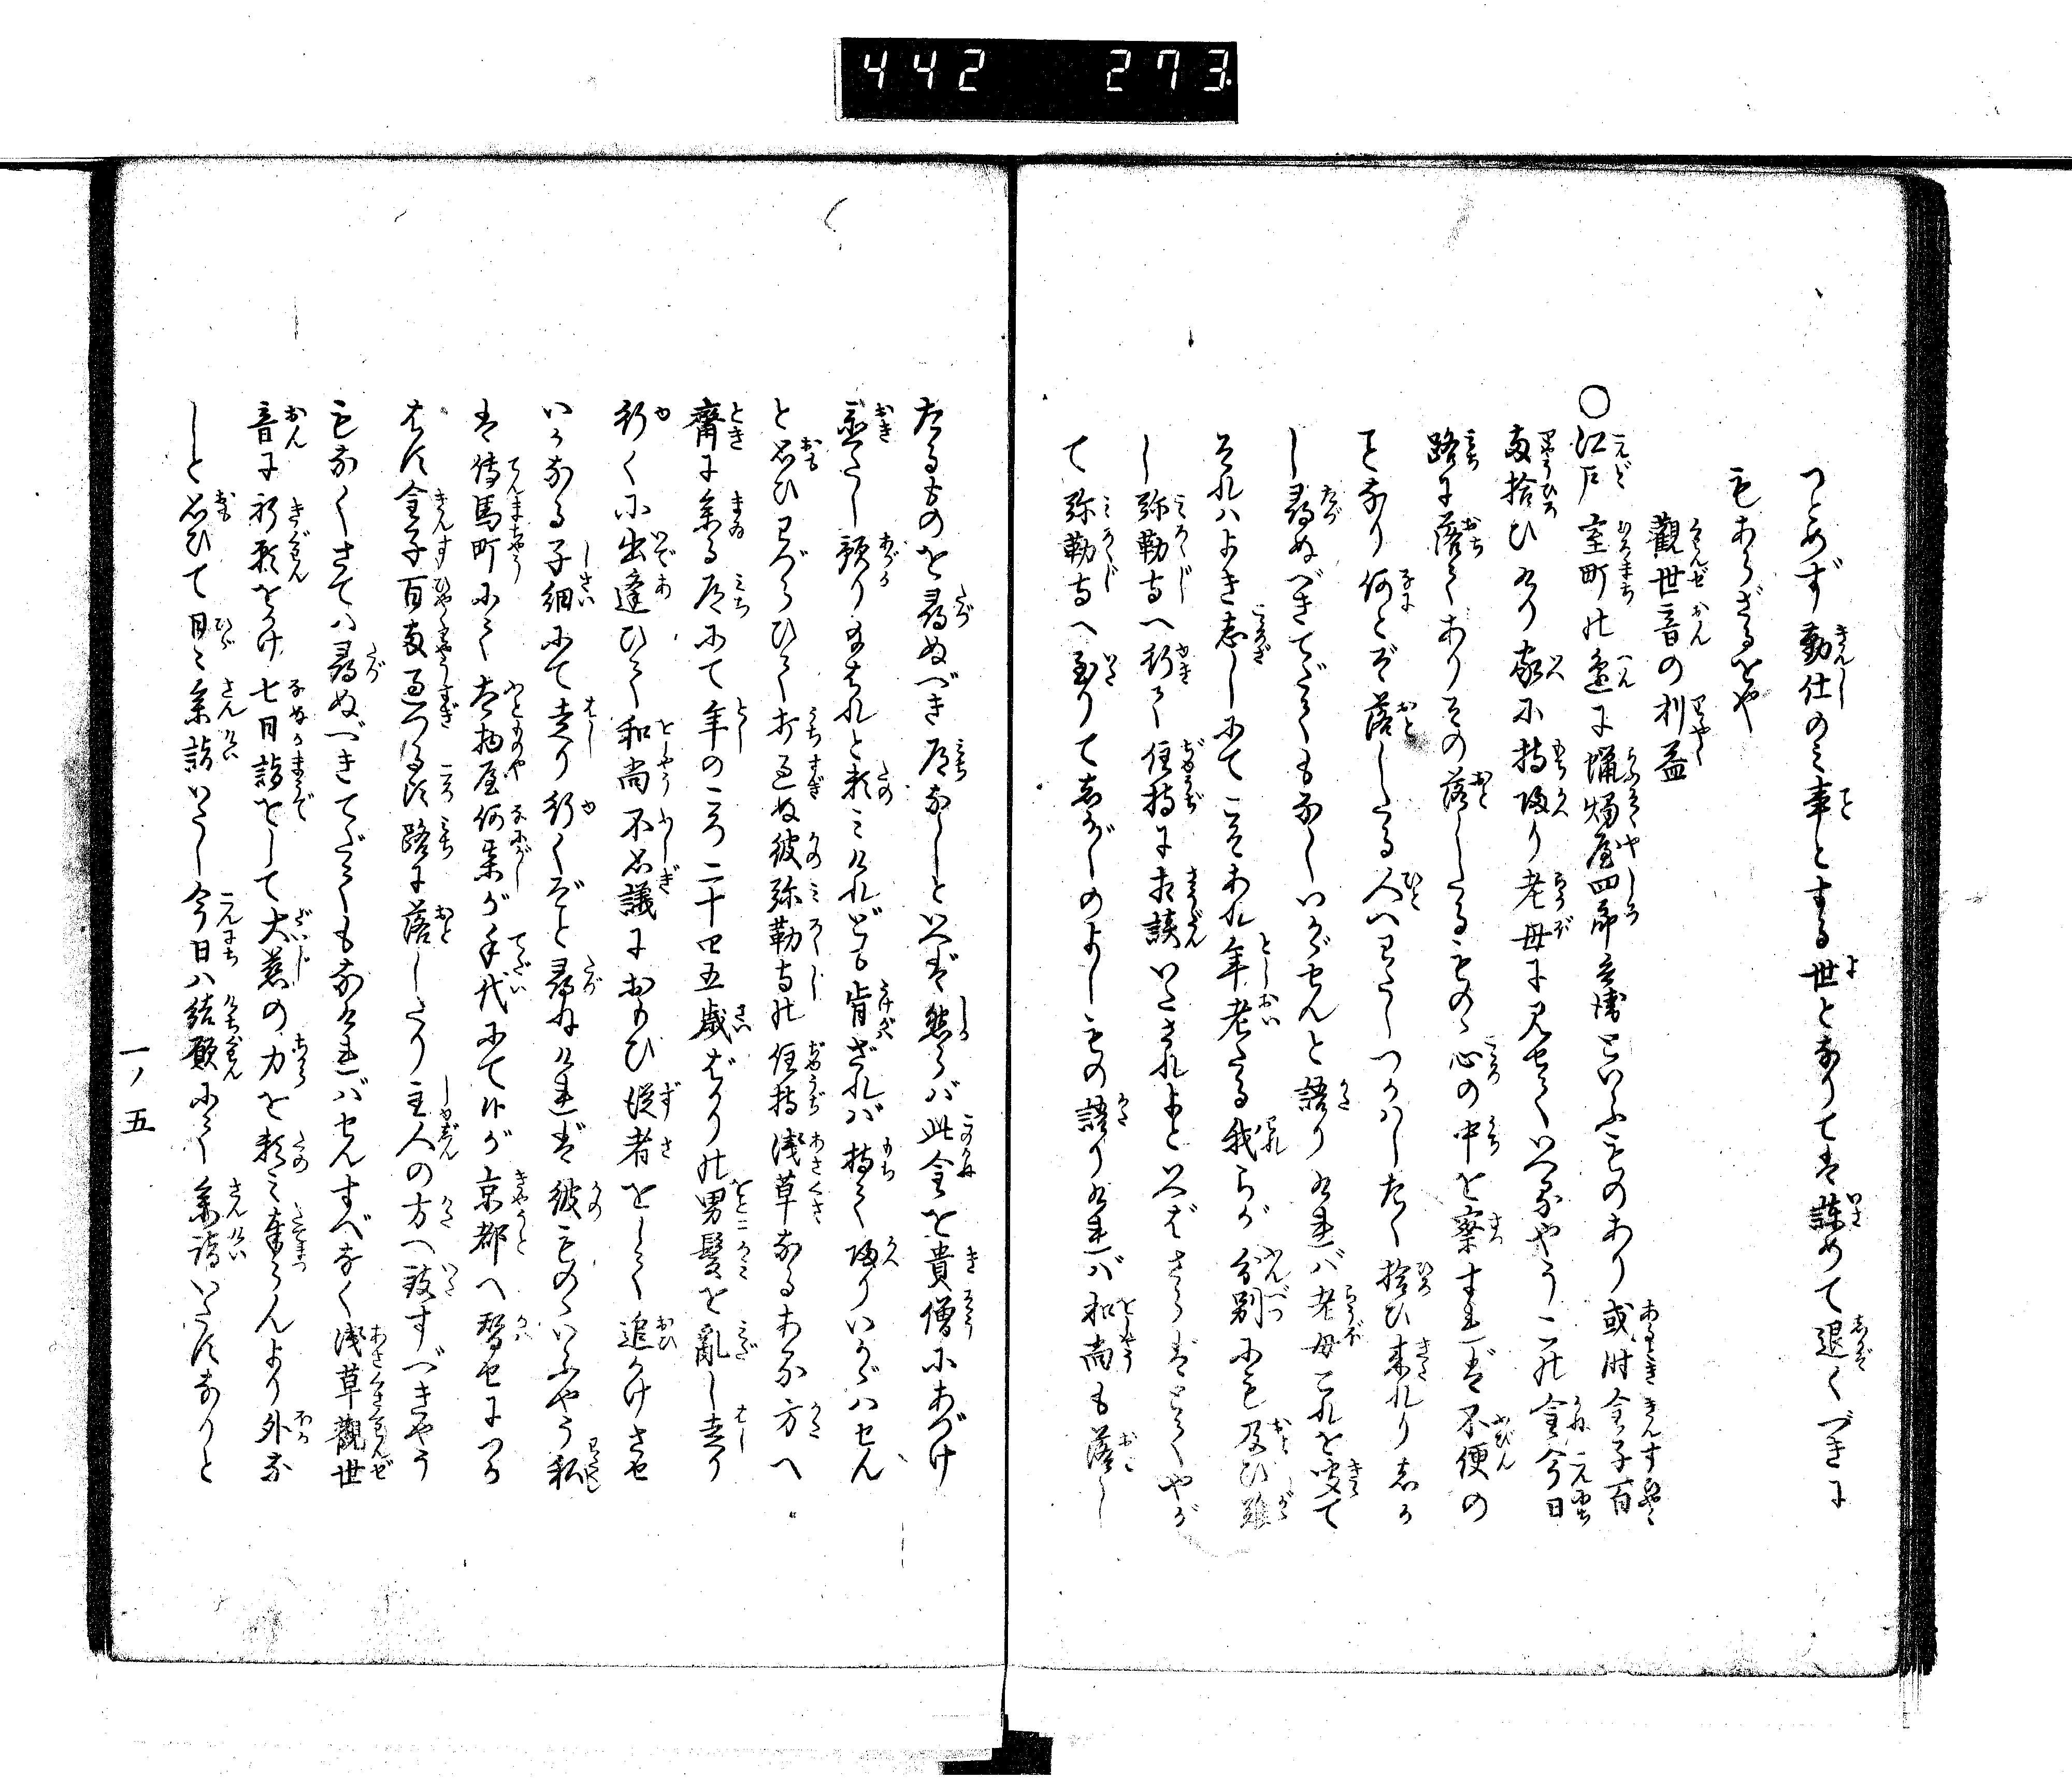 442 273
つとめず勤仕のミ事とする世となりてハ諫めて退くづきに
もあらざるをや
觀世音の利益
○江戸室町の邊に蝋燭屋四郎兵衛といふものあり或時金子百
両拾ひけり家に持帰り老母に見せていへるやうこの金今日
路に落てありその落したるものゝ心の中を察すれば不便の
事なり何とぞ落したる人へわたしつかハしたく拾ひ来れりしか
し尋ぬべきてだても なしいかゞせんと語りけれバ老母これを聞て
それハよき志しにてこそあれ年老たる我らが分別にも及び難
し弥勒寺へ行て住持に相談いたされよといへばさらばとてやが
て弥勒寺へ至りてしか〴〵のよしもの語りけれバ和尚も落し
たるものを尋ぬべき道なしといへば然らバ此金を貴僧にあづけ
置たし預り給はれと頼ミけれども肯ざれバ持て帰りいかゞハせん
と思ひわづらひて打過ぬ彼弥勒寺の住持浅草なるある方へ
齋に参る道にて年のころ二十四五歳ばかりの男髪を亂し走り
行くに出逢ひて和尚不思議におもひ従者をして追かけさせ
いかなる子細にて走り行くぞと尋ねければ彼ものゝいふやう私
は傳馬町にて太物屋何某が手代にて候が京都へ替せにつか
はす金子百両過つる頃路に落したり主人の方へ致すべきやう
もなくさてハ尋ぬべきてだても なけれバせんすべなく浅草觀世
音に祈願をかけ七日詣をして大慈の力を頼ミ奉らんより外な
しと思ひて日々参詣いたし今日ハ結願にて参詣いたすなりと
一ノ五